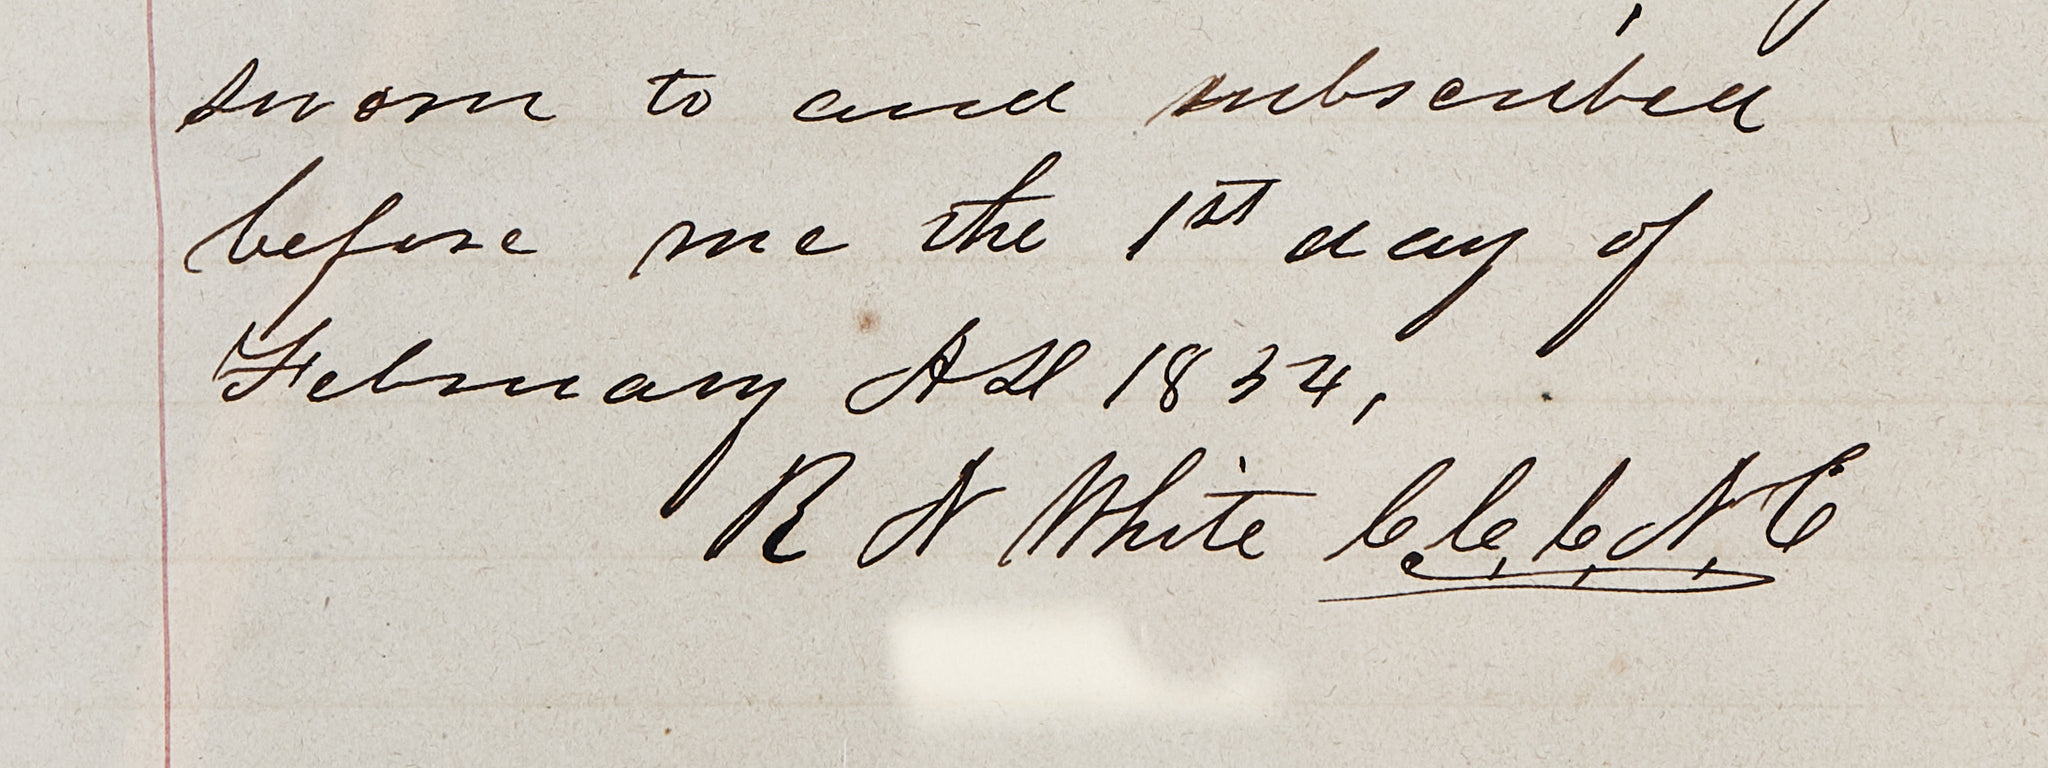 sworn to and subscribed
before me the 1st day of
February AD 1834,
R N White C.C,C,N,C